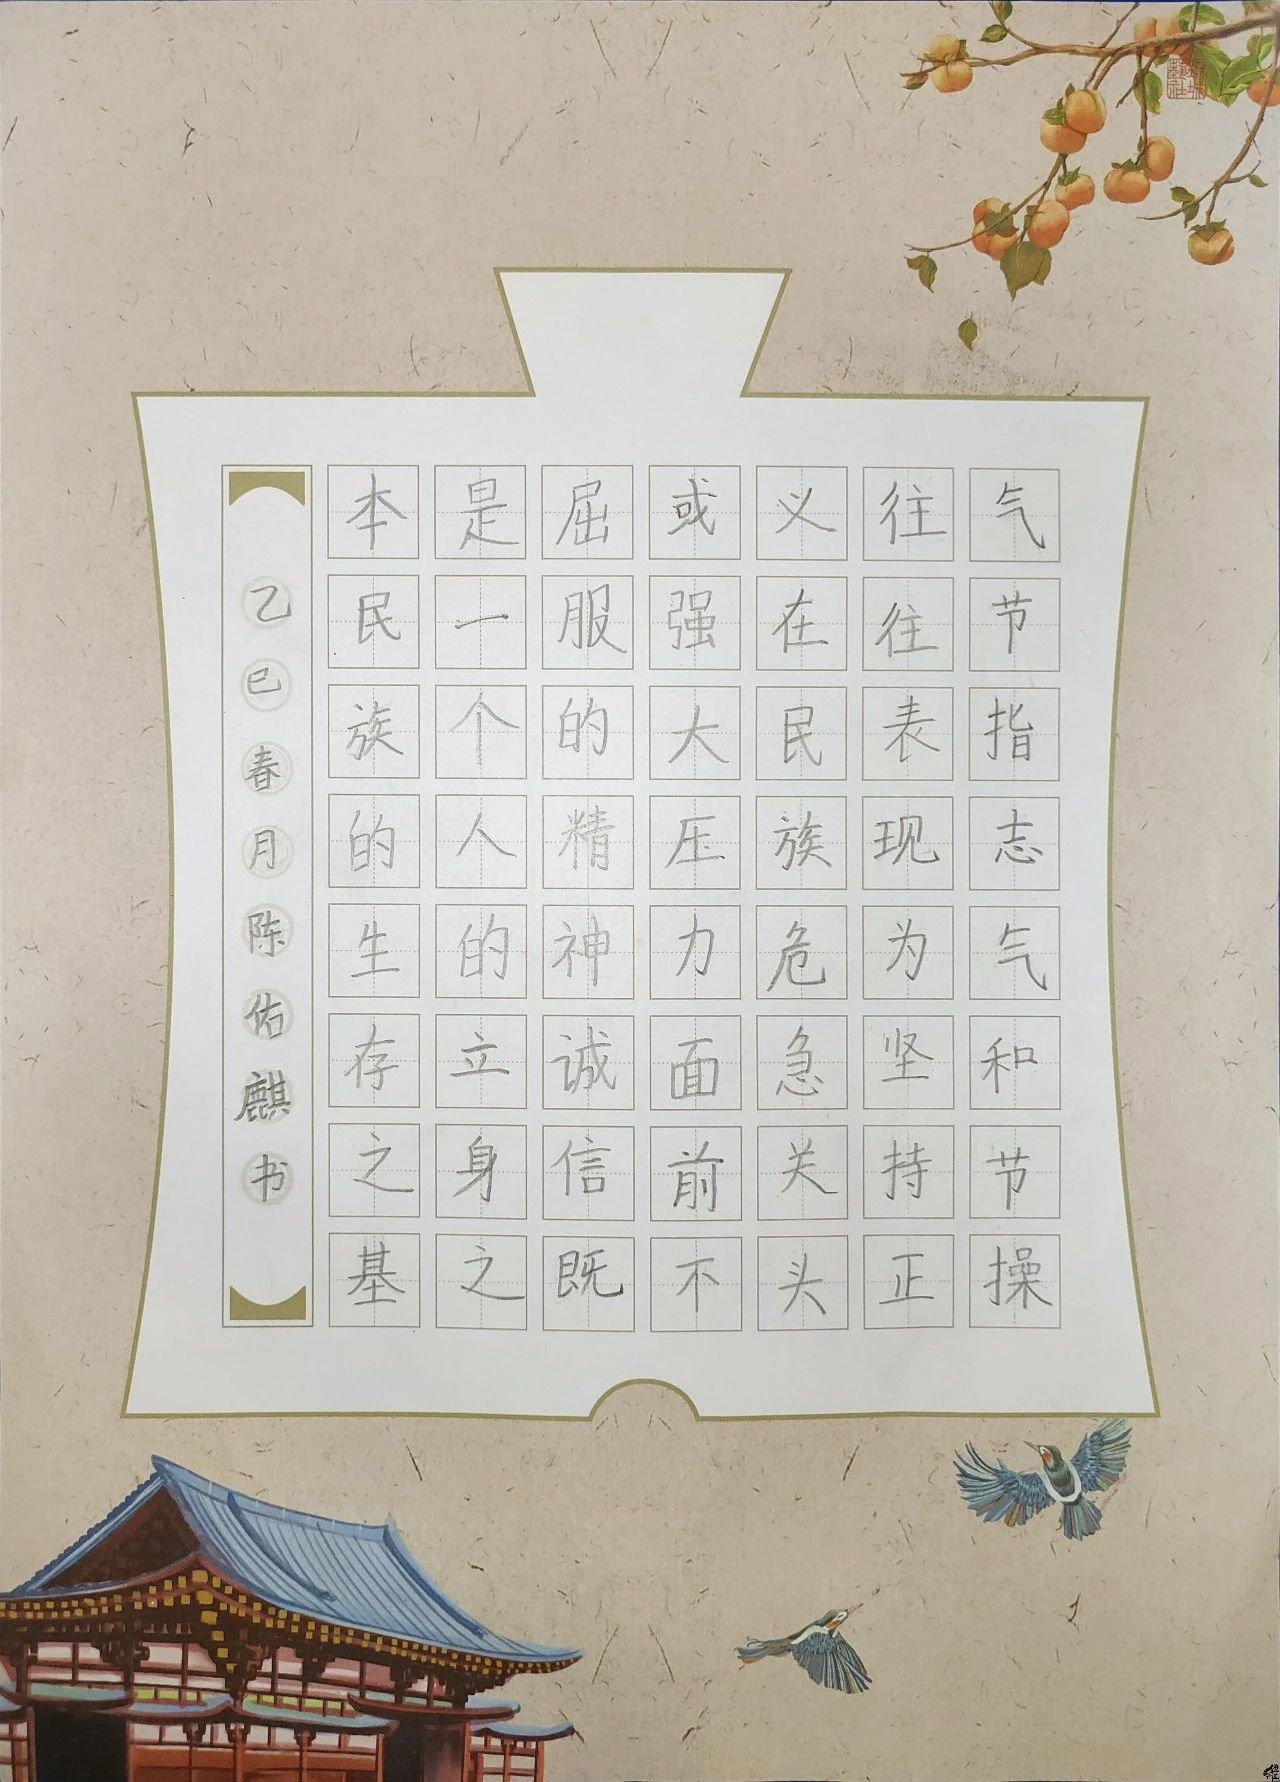 气节指志气和节操
往往表现为坚持正
义在民族危急关头
或强大压力面前不
屈服的精神诚信既
是一个人的立身之
本民族的生存之基
乙巳春月陈佑麒书